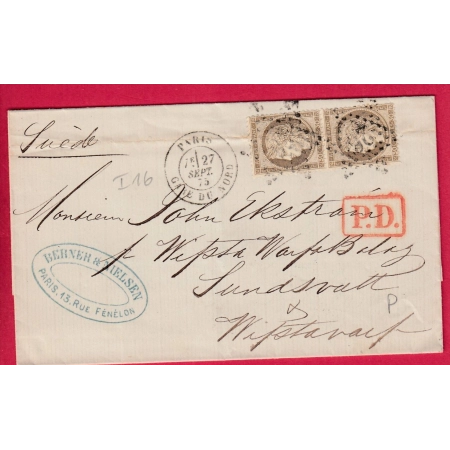 Suède
PARIS
27
SEPT.
75
GARE DU NORD
I16
Monsieur John Ekstrand
P.D.
BERNER & NIELSEN
PARIS.13.RUE FÉNÉLON
p Wifsta Warfs Bolag
Sundsvall
P
Wifstavarf